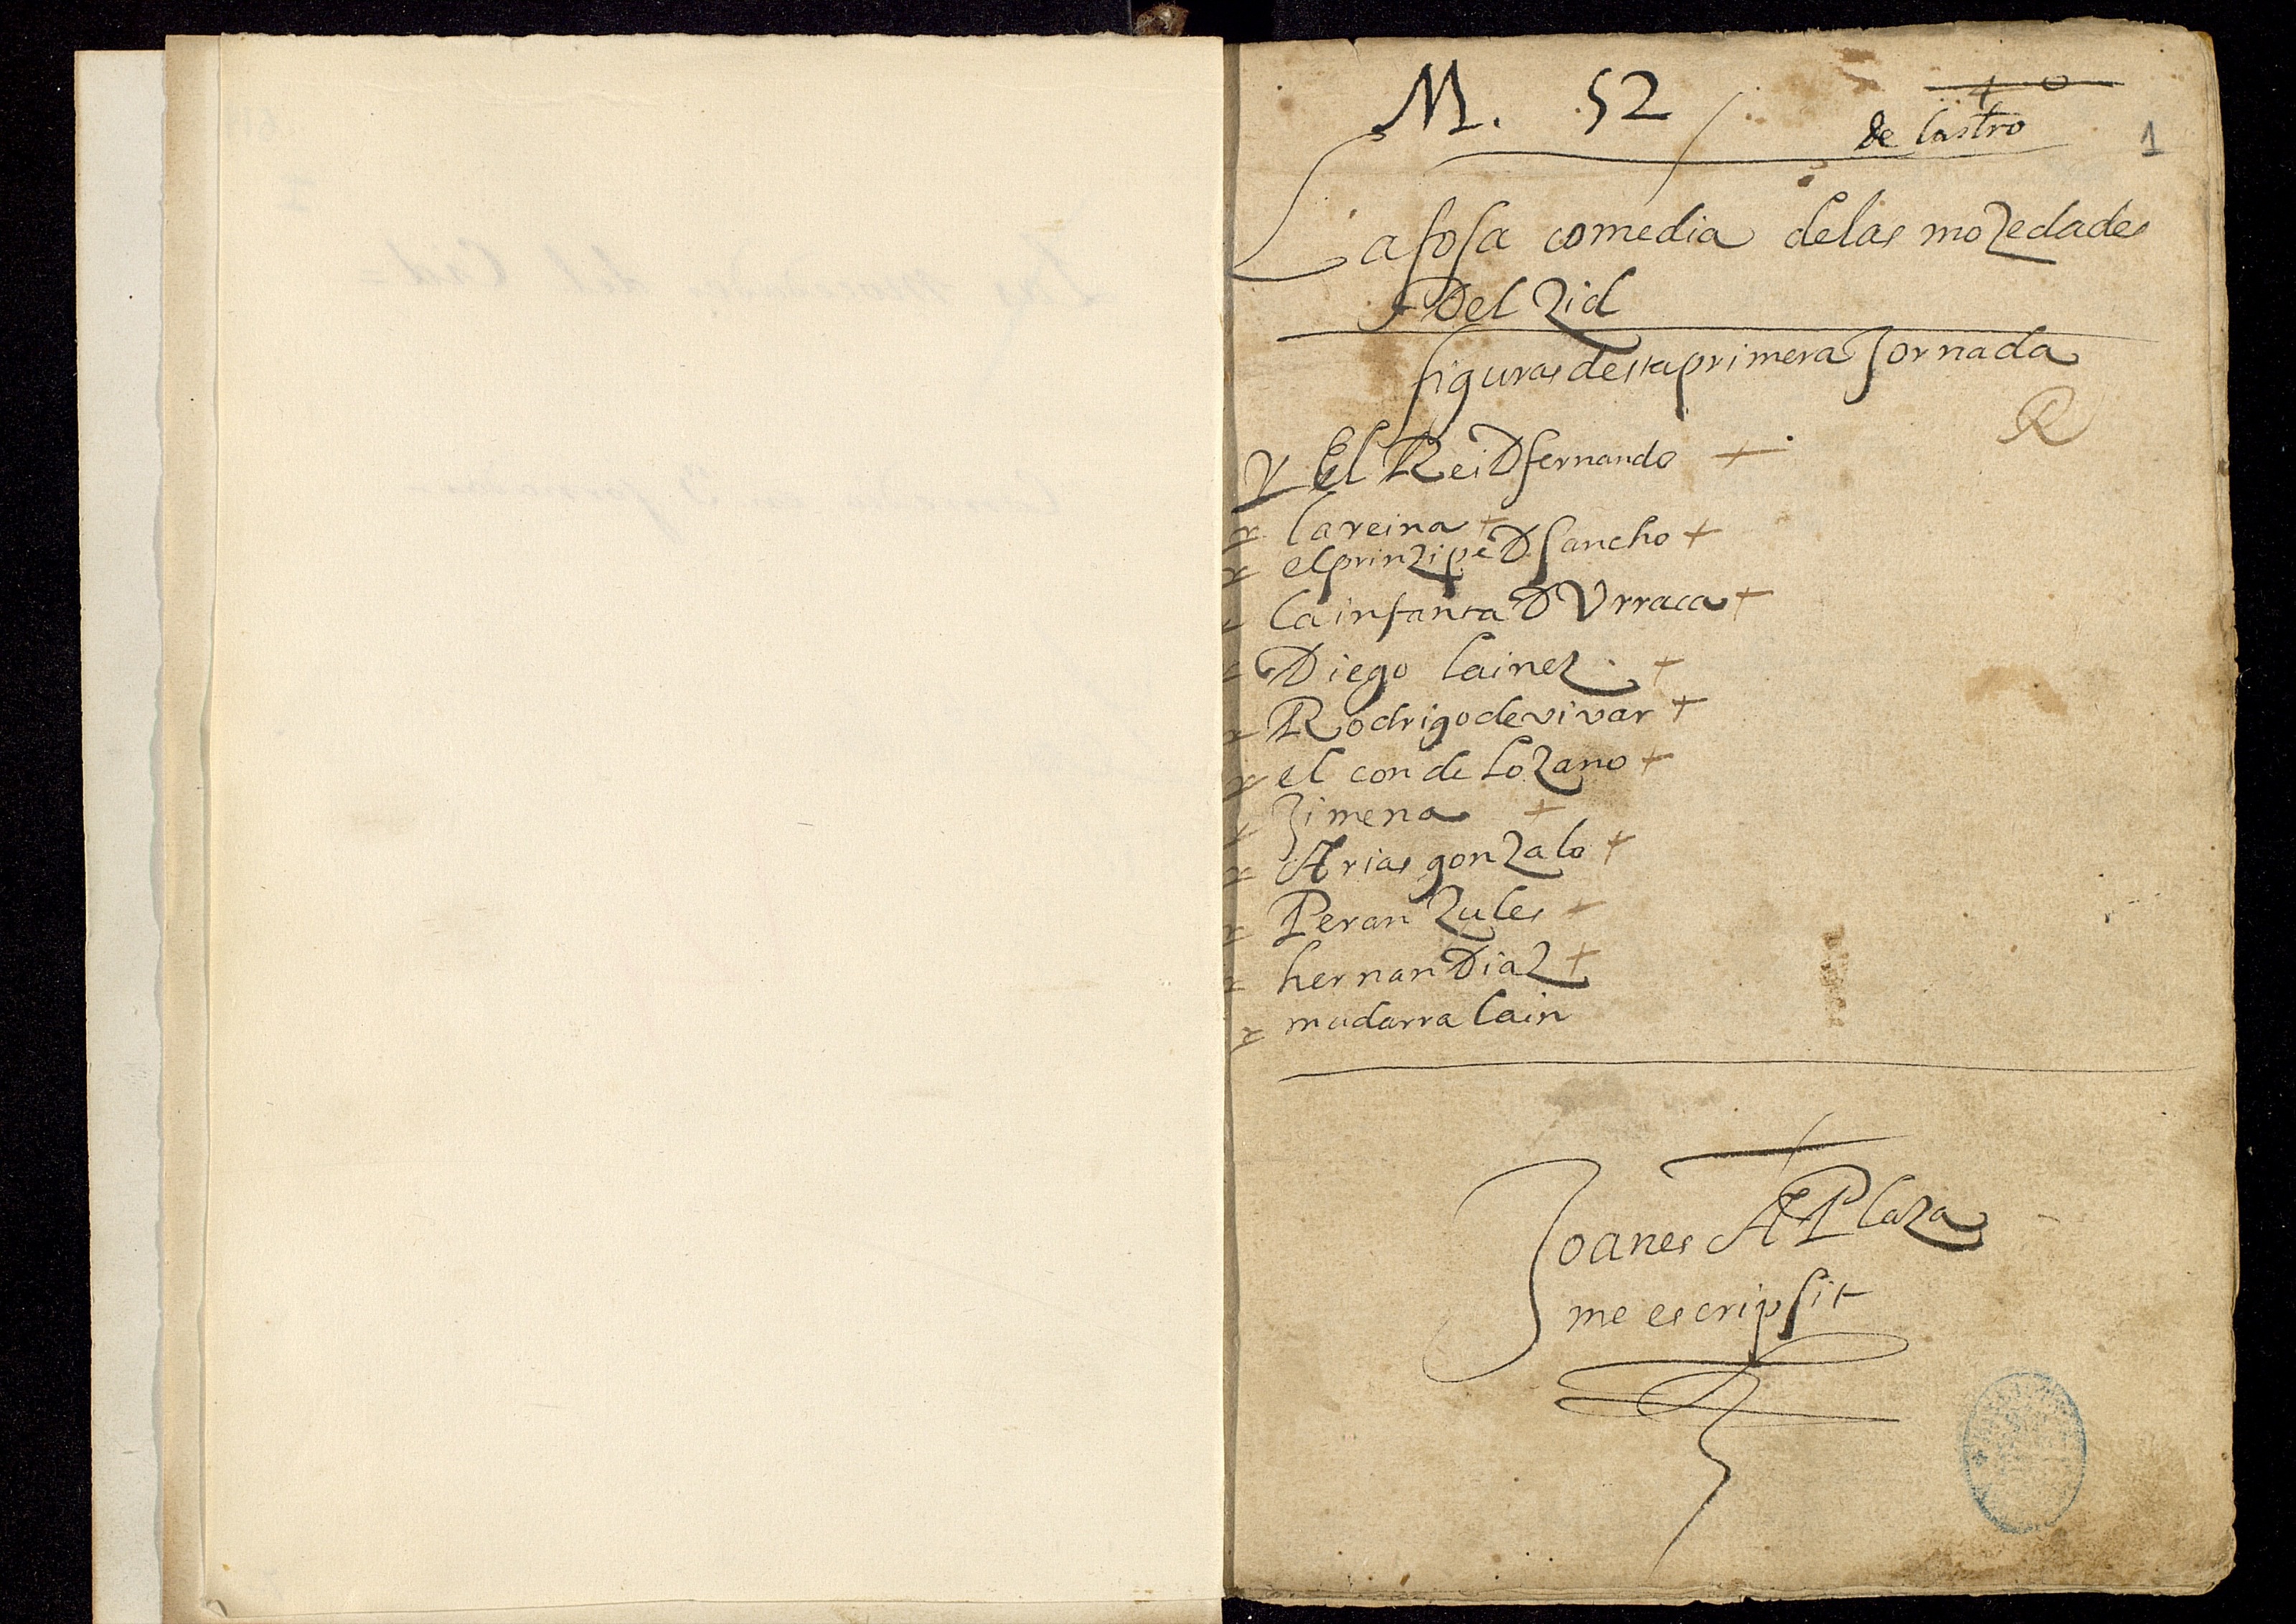 M. 52
4 0
de Castro
1
La fosa comedia de las mozedades
Del Zid
figuras desta primera Jornada
R
El Rei D fernando +
la reina +
el prinzipe D Sancho +
la infanta D Vrraca +
Diego lainez . +
Rodrigo de vivar +
el conde lozano +
Ximena +
Arias gonzalo +
Peranzules
hernan Diaz +
mudarra lain
Joanes A Plaza
me escripsit